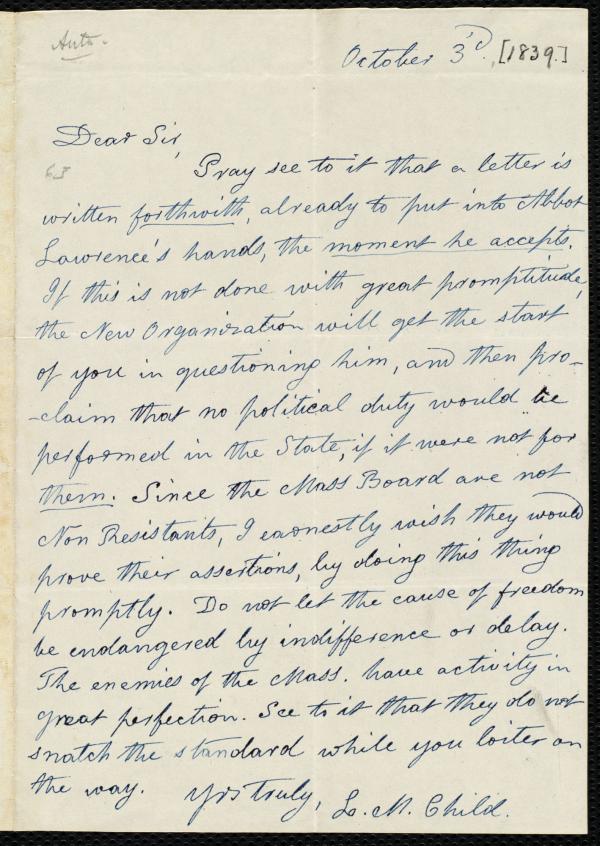 Auto.
October 3d. [1839.]
Dear Sir,
Pray see to it that a letter is
written forthwith, already to put into Abbot
Lawrence's hands, the moment he accepts.
If this is not done with great promptitude,
the New Organization will get the start
of you in questioning him, and then pro-
-claim that no political duty would be
performed in the State, if it were not for
them. Since the Mass Board are not
Non Resistants, I earnestly wish they would
prove their assertions, by doing this thing
promptly. Do not let the cause of freedom
be endangered by indifference or delay.
The enemies of the Mass. have activity in
great perfection. See to it that they do not
snatch the standard while you loiter on
the way. Yrs truly, L. M. Child.